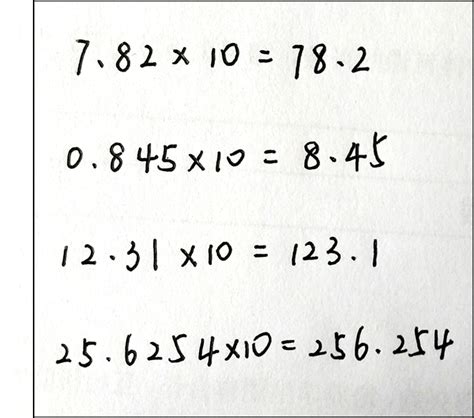 7.82 × 10 = 78.2
0.845 × 10 = 8.45
12.31 × 10 = 123.1
25.6254 × 10 = 256.254